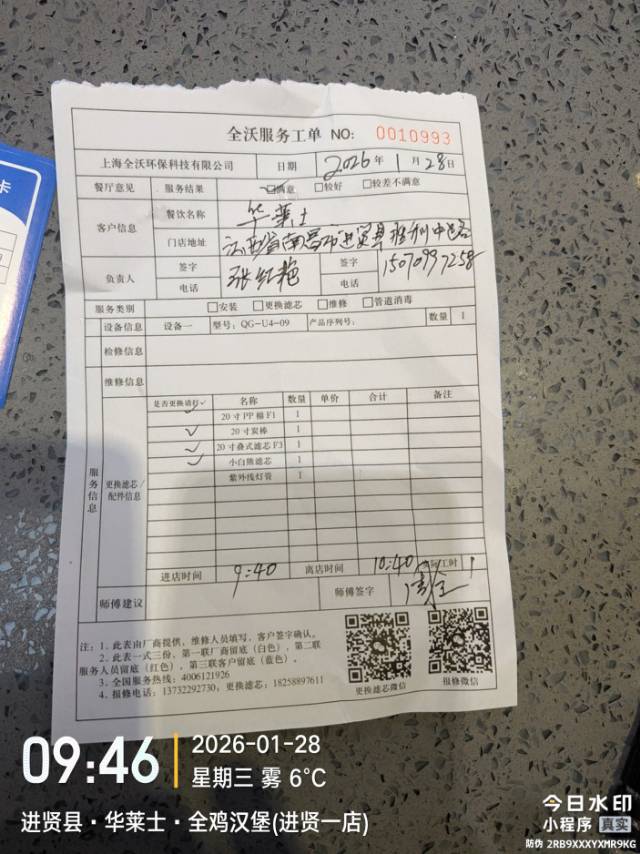 卡
全沃服务工单 NO: 0010993
上海全沃环保科技有限公司 日期 2026年 1月 28日
餐厅意见 服务结果 满意 较好 较差不满意
客户信息 餐饮名称 华莱士
门店地址 江西省南昌市进贤县胜利中路
负责人 签字 张红艳 签字
电话 电话 15070997258
服务类别 安装 更换滤芯 维修 管道消毒
设备信息 设备一 型号: QG-U4-09 产品序列号: 数量 1
检修信息
维修信息
服务信息 更换滤芯/配件信息
是否更换请打✓ 名称 数量 单价 合计 备注
✓ 20寸PP棉F1 1
✓ 20寸炭棒 1
✓ 20寸叠式滤芯F3 1
✓ 小白熊滤芯 1
紫外线灯管 1
进店时间 9:40 离店时间 10:40 工时 1
师傅建议 师傅签字
注: 1. 此表由厂商提供、维修人员填写,客户签字确认。
2. 此表一式三份,第一联厂商留底(白色),第二联
服务人员留底(红色),第三联客户留底(蓝色)。
3. 全国服务热线: 4006121926
4. 报修电话: 13732292730, 更换滤芯: 18258897611
更换滤芯微信 报修微信
09:46 2026-01-28
星期三 雾 6°C
进贤县·华莱士·全鸡汉堡(进贤一店)
今日水印
小程序 真实
防伪 2RB9XXXYXMR9KG